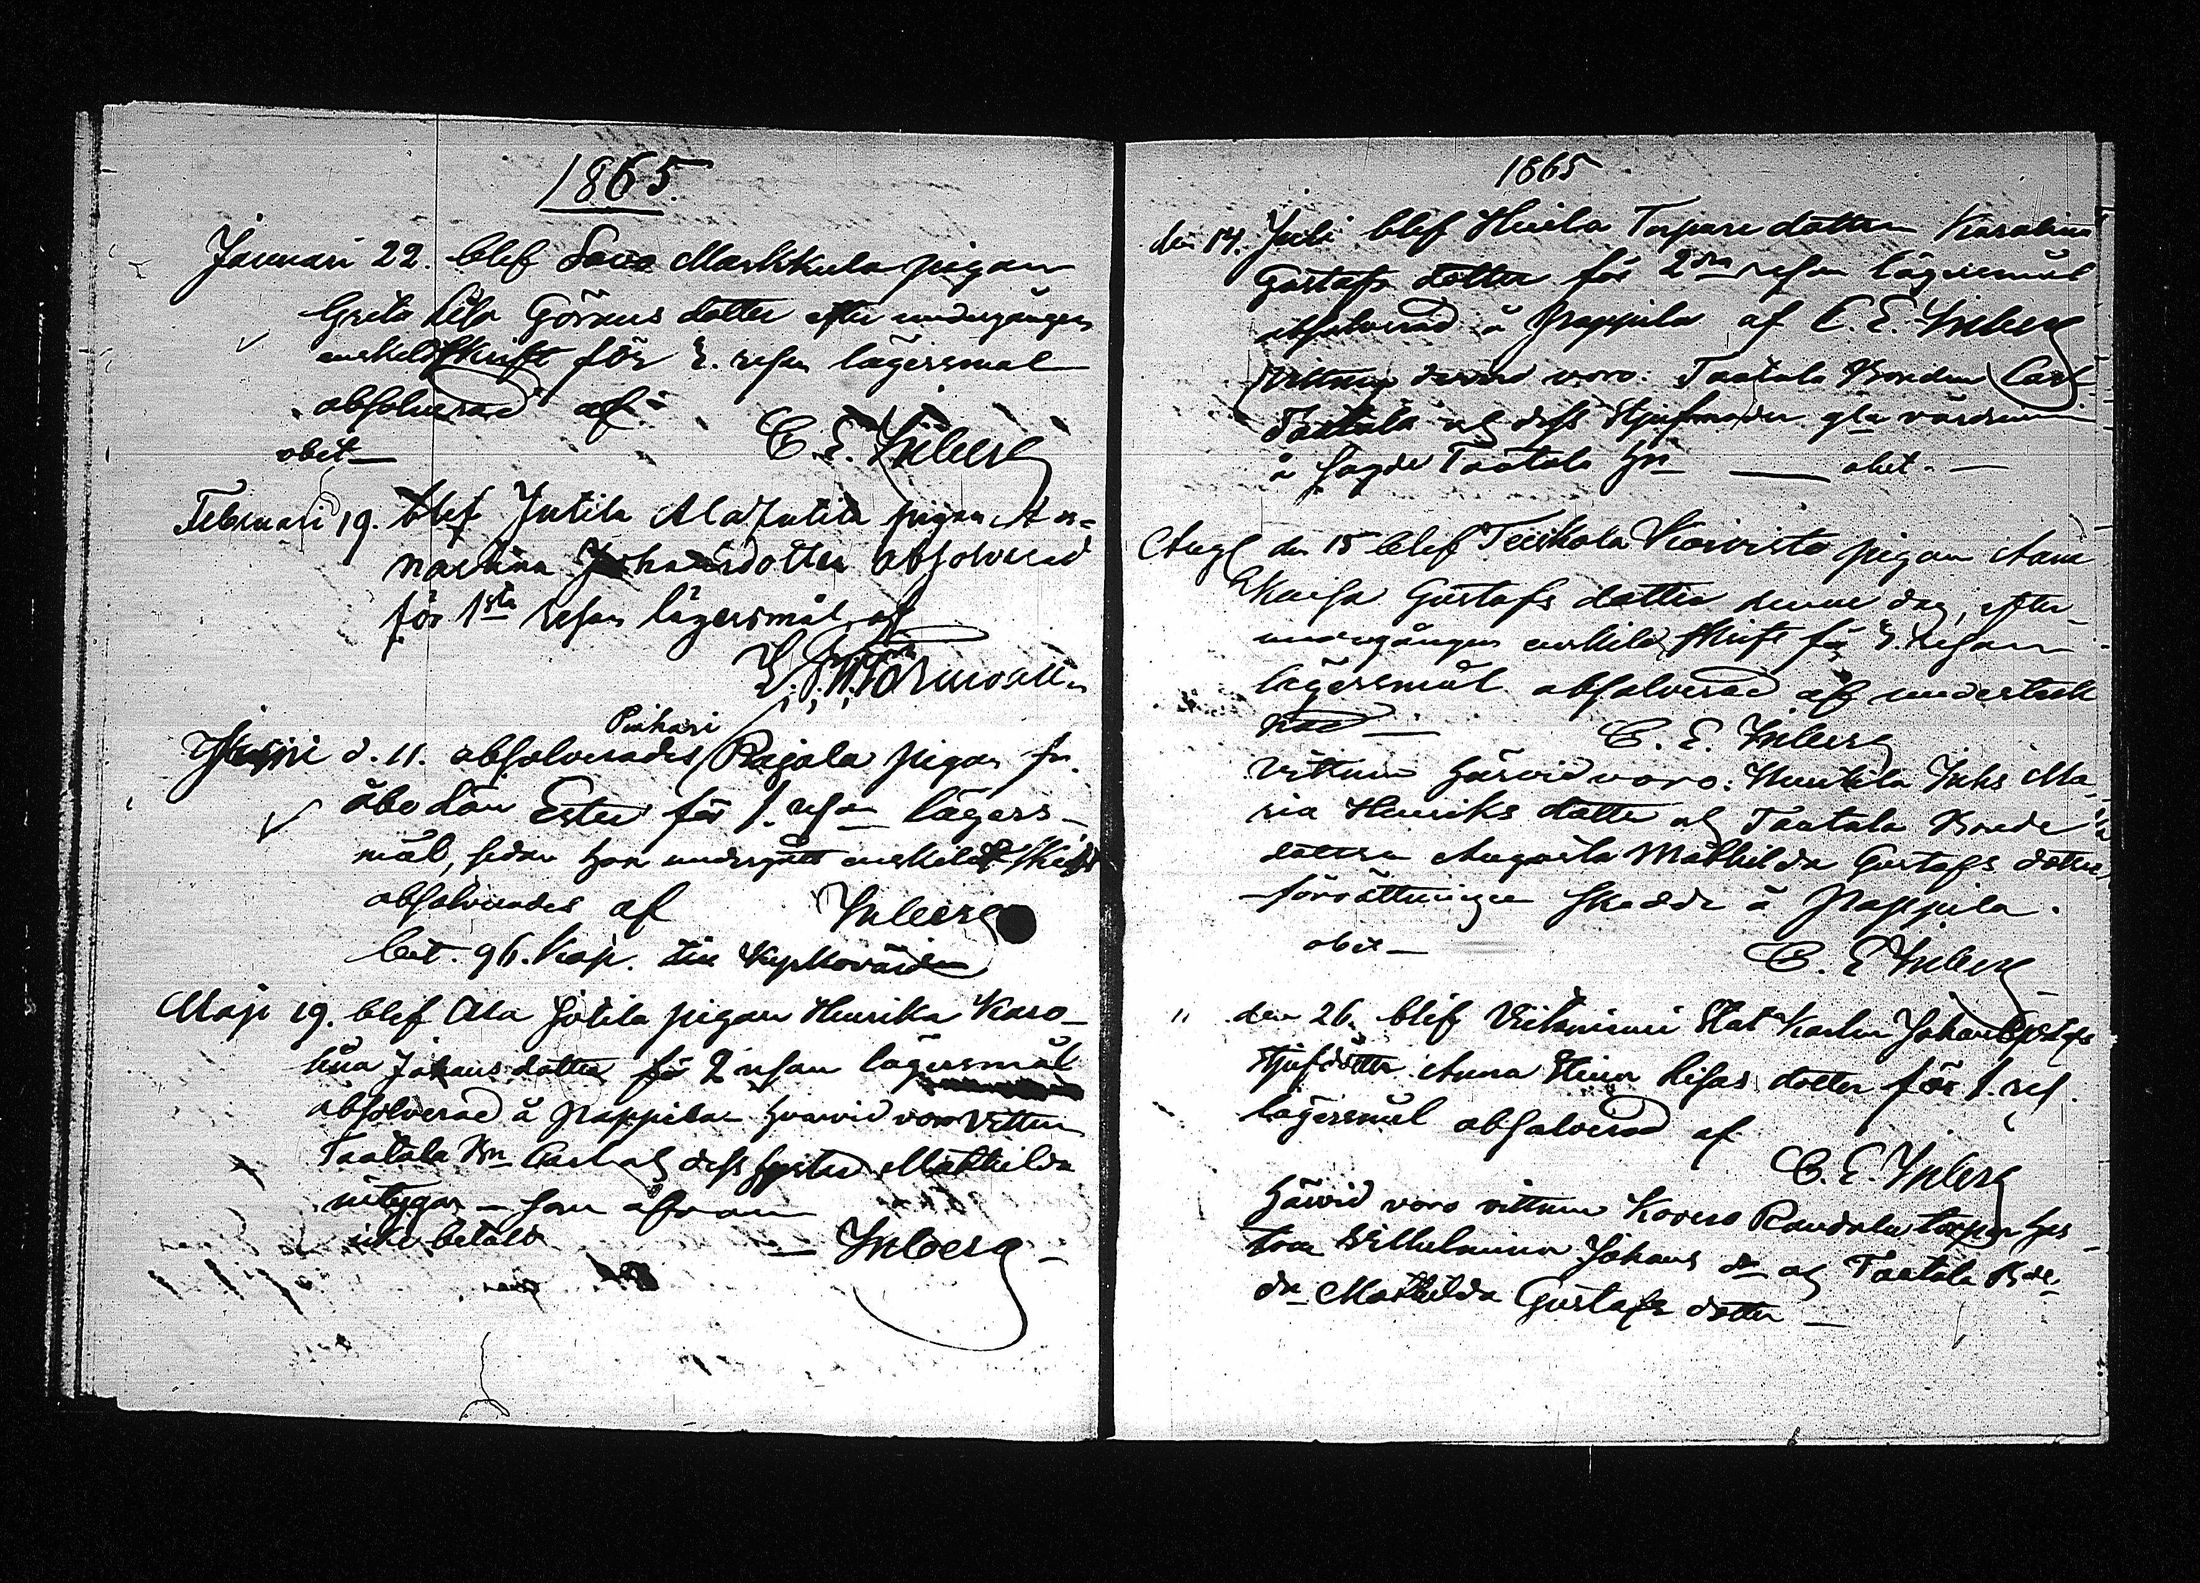 1865.
Januari 22. blef Savo Markkula pigan
Greta Lisa Görans dotter efter undergången
enskildt skrift för 1. resan lägersmål
absolverad af
C. E. Inberg
obet
Februari 19. blef Jutila Ala Jutila pigan An-
nastina Johansdotter absolverad
för 1sta resan lägersmål, af
Pinhari
d. 11. absolverades Rajala pigan fr.
åbo län Ester för 1. resan lägers-
mål, sedan hon undergått enskildt skrift
absolverades af Inberg
bet. 96. kop. till Kyrkovärden
Maji 19. blef Ala Jutila pigan Henrika Karo-
lina Johans dotter för 2 resan lägersmål
absolverad å Pappila hvarvid voro vittnen
Taatala Bn Carl och dess syster Mathilda
intygar – som ofvan
icke betalt – Inberg –
1865
den 14. Juli blef Torpare dottern Karolina
Gustafs dotter för 2dra resan lägersmål
absolverad å Pappila af C. E. Inberg
Vittnen dervid voro: Taatala Bonden Carl
Taatala och dess Stjufmoder gla värdinnan
å sagde Taatala hn — obet. —
Aug den 15 blef Teiskola Koivisto pigan Anna
Kaisa Gustafs dotter denne dag, efter
undergången enskild skrift för 1. resan
lägersmål absolverad af underteck
nad —
C. E. Inberg
Vittnen härvid voro: Inhs Ma-
ria Henriks dotter och Taatala Bonde
dottren Augusta Mathilda Gustafs dotter,
förrättningen skedde å Pappila.
obet –
C. E. Inberg
" den 26. blef Karlen Johan
stjufdotter Anna Stina Lisas dotter för 1. res.
lägersmål absolverad af
C. E. Inberg
Härvid voro vittnen Kovero Randala torpar hus-
tron Vilhelmina Johans dr och Taatala Bde
dr Mathilda Gustafs dotter —